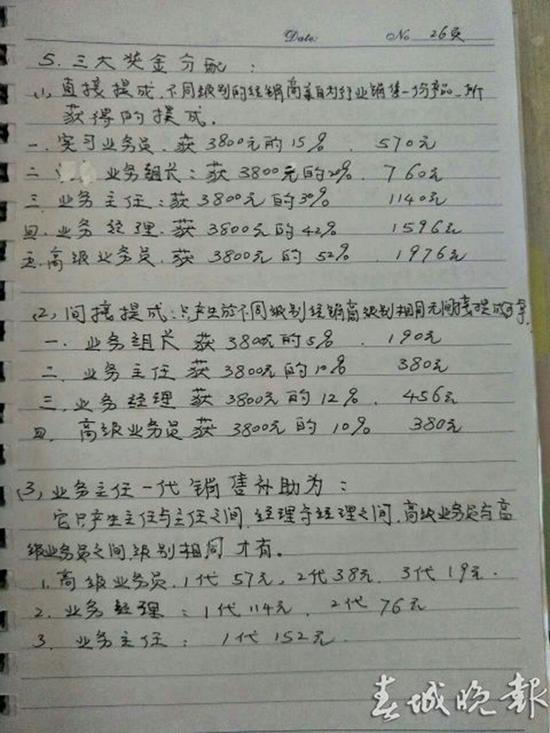 Date: No 26页
5. 三大奖金分配:
(1) 直接提成,不同级别的经销商亲自为行业销售一份产品,所
获得的提成.
一.实习业务员.获3800元的15%. 570元
二 业务组长:获3800元的20%. 760元
三.业务主任:获3800元的30% 1140元
四.业务经理.获3800元的42% 1596元
五.高级业务员.获3800元的52%. 1976元
(2) 间接提成:只产生於不同级别经销商级别相同无间接提成
一.业务组长 获3800元的5%. 190元
二.业务主任 获3800元的10% 380元
三.业务经理 获3800元的12%. 456元
四. 高级业务员 获3800元的10% 380元
(3) 业务主任一代销售补助为:
它只产生主任与主任之间,经理与经理之间,高级业务员与高
级业务员之间,级别相同才有。
1.高级业务员,1代57元,2代38元,3代19元.
2.业务经理:1代114元,2代76元
3.业务主任: 1代152元.
春城晚報